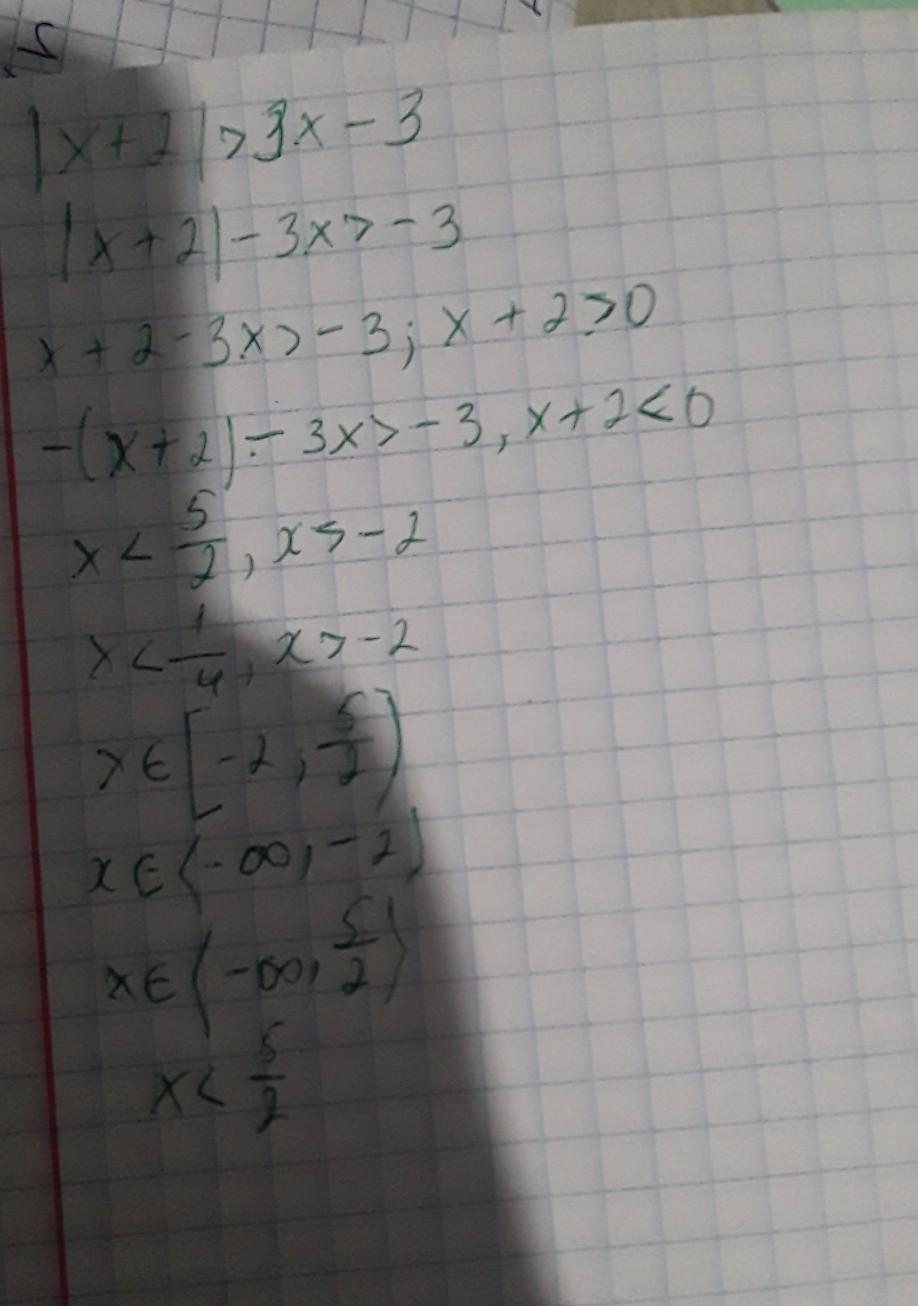 |x+2|>3x-3
|x+2|-3x>-3
x+2-3x>-3; x+2≥0
-(x+2)-3x>-3, x+2<0
x<5/2, x≥-2
x<1/4, x>-2
x∈[-2,5/2)
x∈(-∞,-2)
x∈(-∞,5/2)
x<5/2